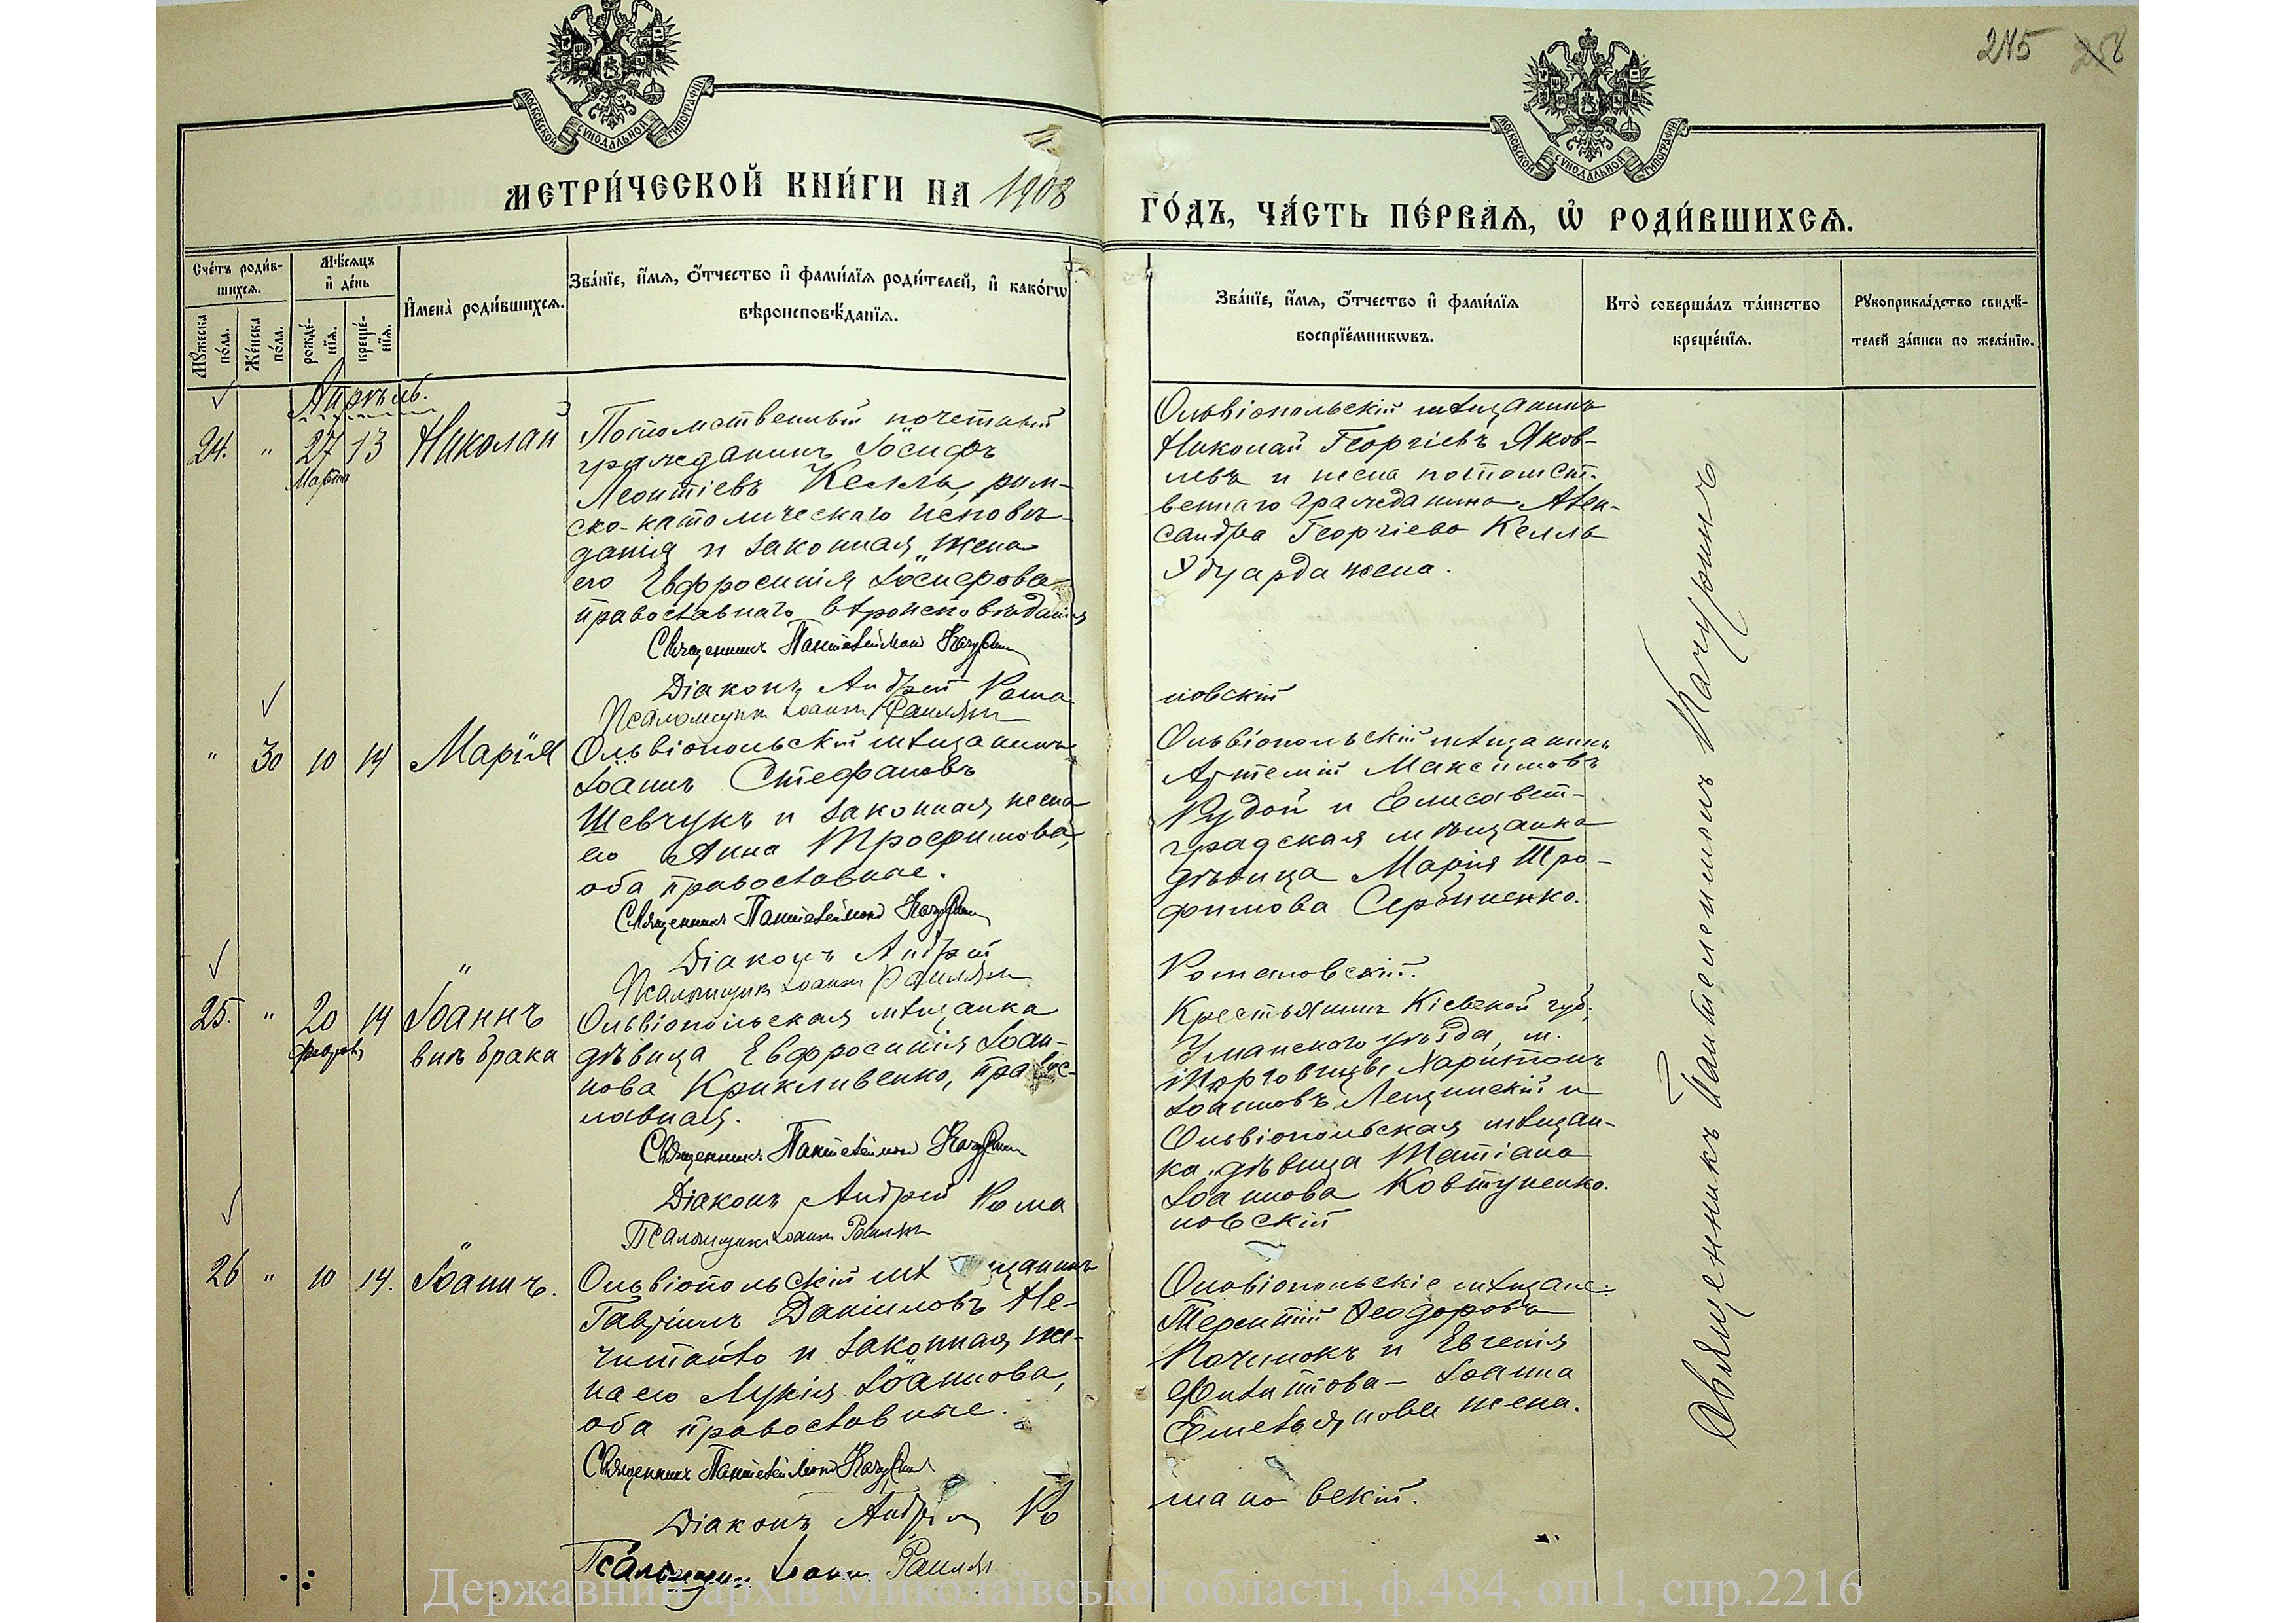 215 258
МОСКОВСКОЙ СѴНОДАЛЬНОЙ ТИПОГРАФІИ
МОСКОВСКОЙ СѴНОДАЛЬНОЙ ТИПОГРАФІИ
МЕТРИ́ЧЕСКОЙ КНИ́ГИ НА 1908
ГО́ДЪ, ЧА́СТЬ ПЕ́РВАѦ, Ѡ҆ РОДИ́ВШИХСѦ.
Сче́тъ роди́в-
шихсѧ.
Мꙋ́жеска
по́ла.
Же́нска
по́ла.
Мѣ́сѧцъ
и҆ де́нь
рожде́-
нїѧ.
креще́-
нїѧ.
И҆мена̀ роди́вшихсѧ.
Зва́нїе, и҆́мѧ, ѻ҆́тчество и҆ фами́лїѧ роди́телей, и҆ како́гѡ
вѣроисповѣ́данїѧ.
Зва́нїе, и҆́мѧ, ѻ҆́тчество и҆ фами́лїѧ
воспрїе́мникѡвъ.
Кто̀ соверша́лъ та́инство
креще́нїѧ.
Рꙋкоприкла́дство свидѣ́-
телей за́писи по жела́нїю.
Апрѣль.
24. " 27 13 Николай
Марта
Потомственный почетный
гражданинъ Іосифъ
Леонтіевъ Келль, рим-
ско-католическаго исповѣ-
данія и законная жена
его Евфросинія Іосифова
православнаго вѣроисповѣданія
Священникъ Пантелеимонъ Качуринъ
Діаконъ Андрей Рома
Псаломщикъ Іоаннъ
Ольвіопольскій мѣщанинъ
Николай Георгіевъ Яков-
левъ и жена потомст-
веннаго гражданина Алек-
сандра Георгіева Келль
Эдуарда жена.
новскій
" 30 10 14 Марія
Ольвіопольскій мѣщанинъ
Іоаннъ Стефановъ
Шевчукъ и законная жена
его Анна Трофимова,
оба православные.
Священникъ Пантелеимонъ Качуринъ
Діаконъ Андрей
Псаломщикъ Іоаннъ
Ольвіопольскій мѣщанинъ
Артемій Максимовъ
Рудой и Елисавет-
градская мѣщанка
дѣвица Марія Тро-
фимова Сербиненко.
Романовскій.
25. " 20 14 Іоаннъ
Февраля внѣ брака
Ольвіопольская мѣщанка
дѣвица Евфросинія Іоан-
нова Крикливенко, правос-
лавная.
Священникъ Пантелеимонъ Качуринъ
Діаконъ Андрей Рома
Псаломщикъ Іоаннъ
Крестьянинъ Кіевской губ.
Уманскаго уѣзда, м.
Торговицы Харитонъ
Іоанновъ Лещинскій и
Ольвіопольская мѣщан-
ка дѣвица Татіана
Іоаннова Ковтуненко.
новскій
26 " 10 14. Іоаннъ.
Ольвіопольскій мѣщанинъ
Гавріилъ Даніиловъ Не-
читайло и законная же-
на его Лукія Іоаннова,
оба православные.
Священникъ Пантелеимонъ Качуринъ
Діаконъ Андрей Ро
Псаломщикъ Іоаннъ
Ольвіопольскіе мѣщане:
Терентій Феодоровъ
Починокъ и Евгенія
Филиппова - Іоанна
Емельянова жена.
мановскій.
Священникъ Пантелеимонъ Качуринъ
Державний архів Миколаївської області, ф.484, оп.1, спр.2216